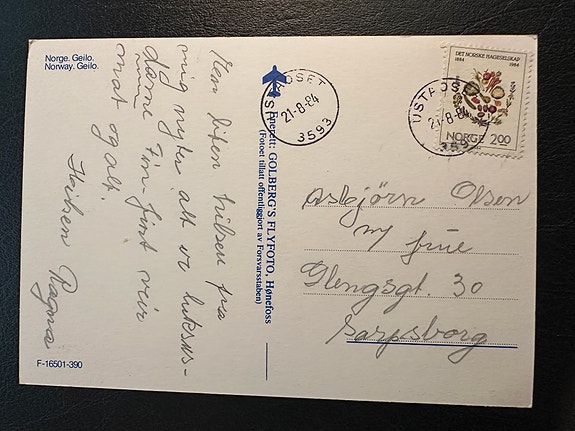 Norge. Geilo.
Norway. Geilo.
liten hilsen fra
mig nyter alt luksus-
Fin fint veir
og alt.
Hilsen Ragna
F-16501-390
Enerett: GOLBERG'S FLYFOTO, Hønefoss
(Fotoet tillatt offentliggjort av Forsvarsstaben)
USTAOSET
21-8-84
3593
DET NORSKE HAGESELSKAP
1884 1984
NORGE 200
USTAOSET
21-8-84
3593
Asbjørn Olsen
m/ frue
Glengsgt. 30
Sarpsborg